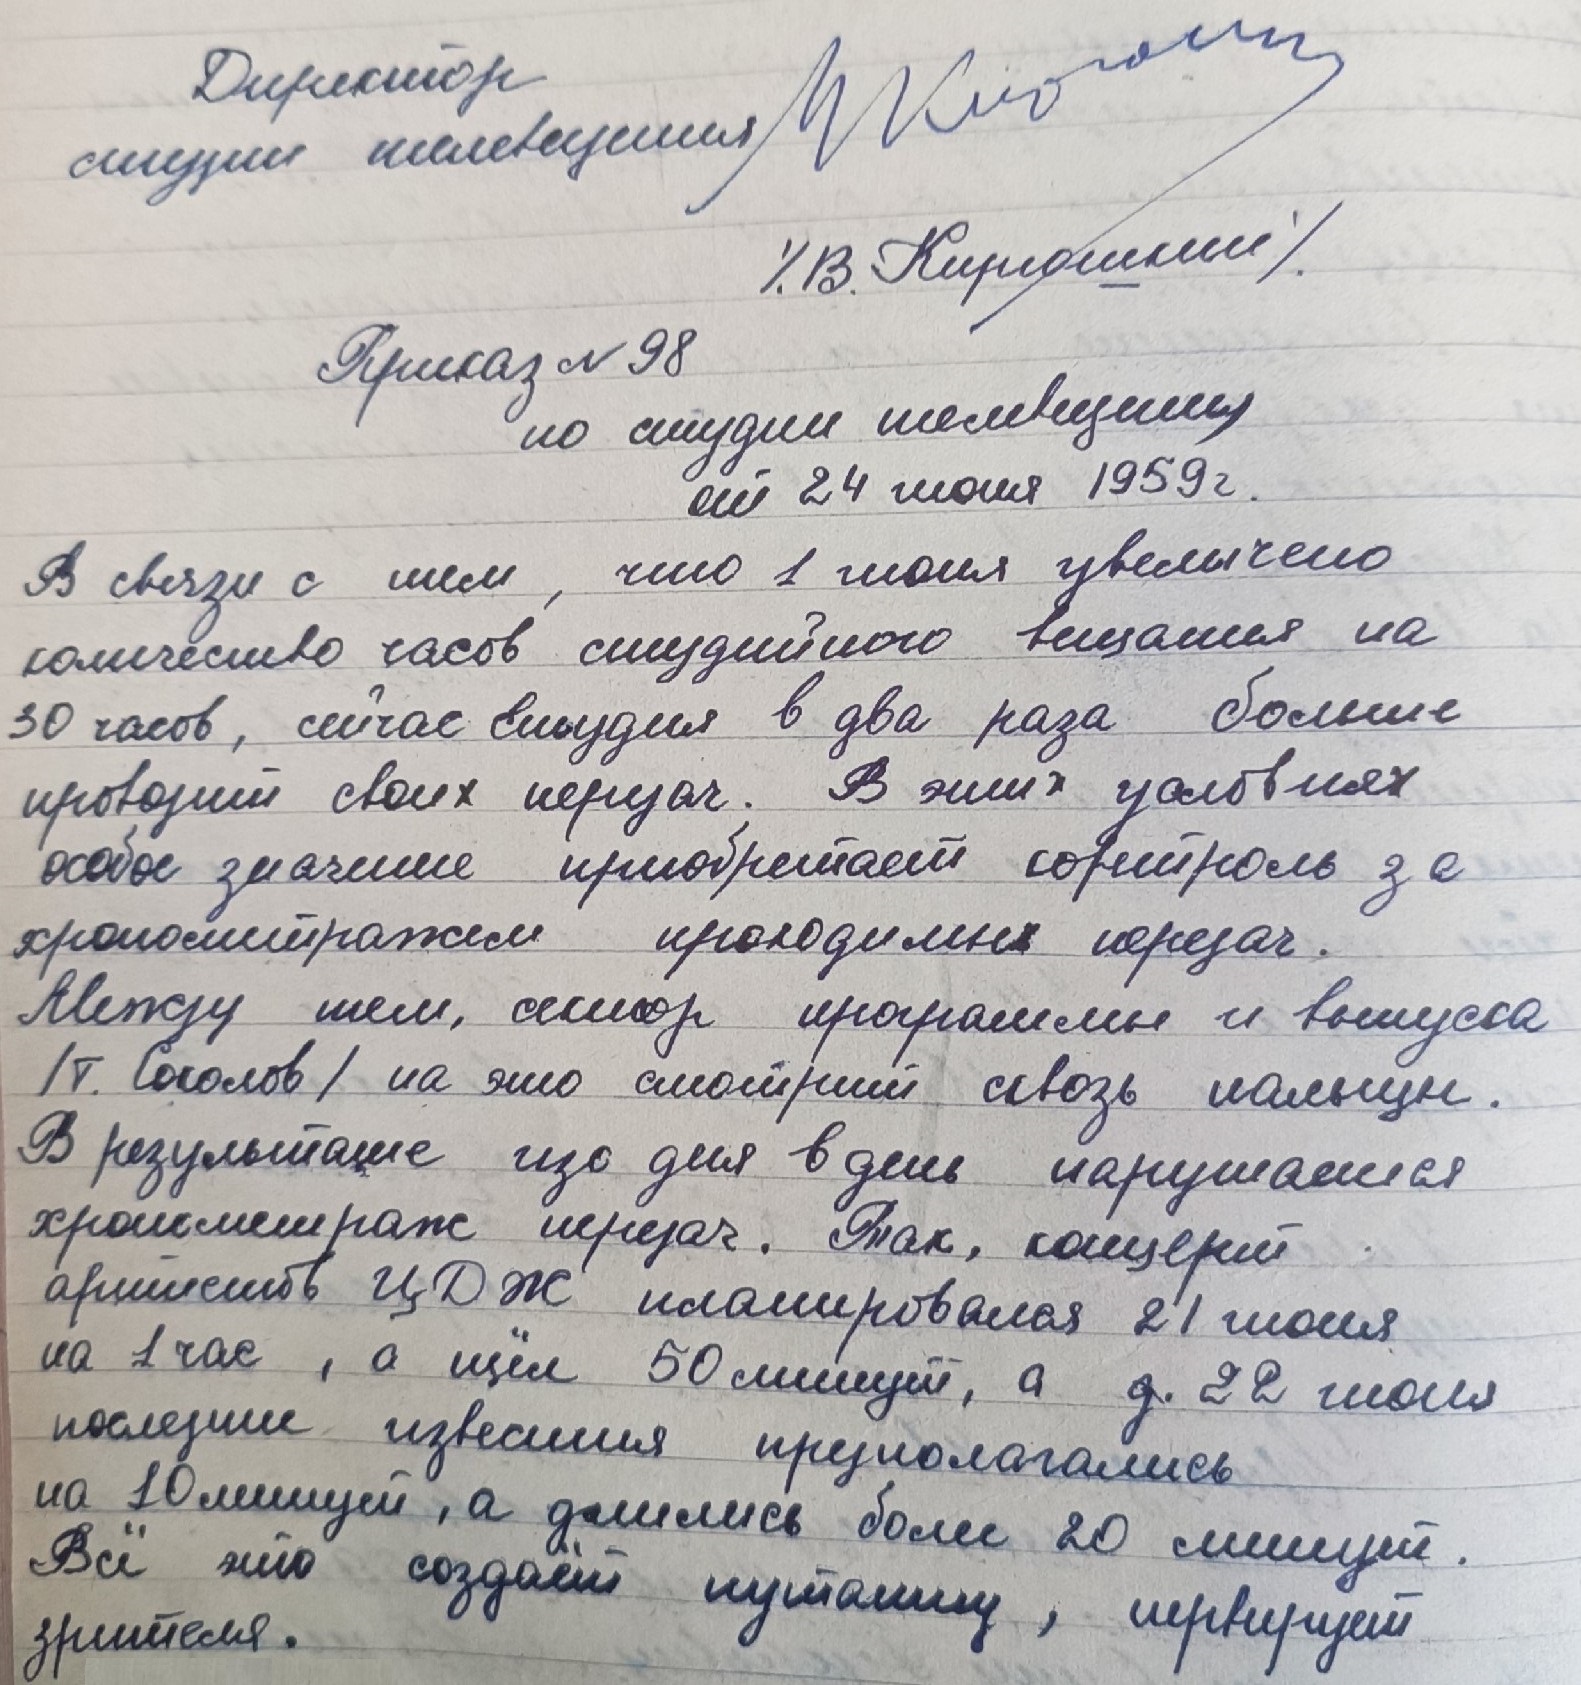 Директор
студии телевещания
/.В. Кирошкий/.
Приказ N 98
по студии телевещания
от 24 июня 1959г.
В связи с тем, что 1 июня увеличено
количество часов студийного вещания на
30 часов, сейчас студия в два раза больше
проводит своих передач. В этих условиях
особое значение приобретает контроль за
хронометражем проводимых передач.
Между тем, сектор программы и выпуска
/т. Соколов/ на это смотрит сквозь пальцы.
В результате изо дня в день нарушается
хронометраж передач. Так, концерт
артистов ЦДЖ планировался 21 июня
на 1 час, а шёл 50 минут, а д. 22 июня
последние известия предполагались
на 10 минут, а длились более 20 минут.
Всё это создаёт путаницу, нервирует
зрителя.